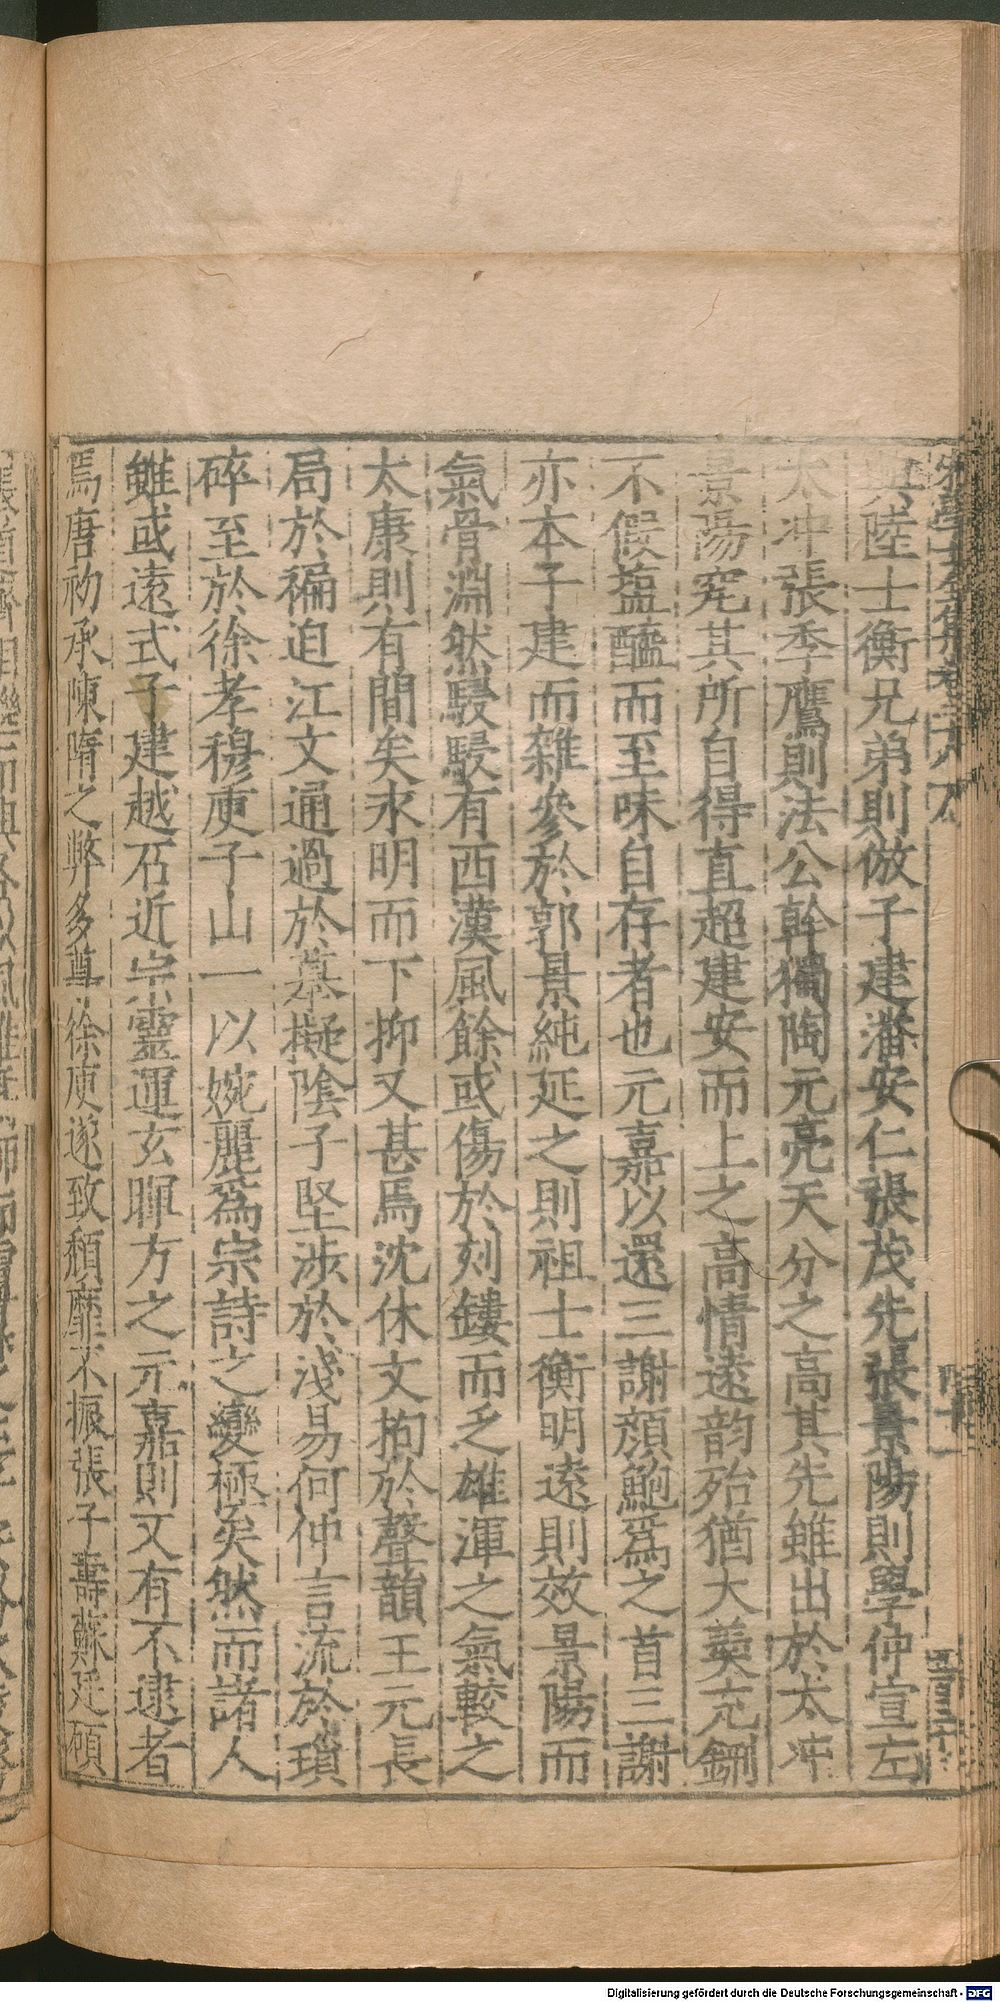 陸士衡兄弟則倣子建潘安仁張茂先張景陽則學仲宣左
太冲張季鷹則法公幹獨陶元亮天分之高其先雖出於太冲
景陽究其所自得直超建安而上之高情遠韵殆猶大羹充鉶
不假塩醯而至味自存者也元嘉以還三謝顔鮑爲之首三謝
亦本子建而雜參於郭景純延之則祖士衡明遠則效景陽而
氣骨淵然駸駸有西漢風餘或傷於刻鏤而乏雄渾之氣較之
太康則有間矣永明而下抑又甚焉沈休文拘於聲韻王元長
局於褊迫江文通過於摹擬陰子堅涉於淺易何仲言流於瑣
碎至於徐孝穆庾子山一以婉麗爲宗詩之變極矣然而諸人
雖或遠式子建越石近宗靈運玄暉方之元嘉則又有不逮者
焉唐初承陳隋之弊多尊徐庾遂致頹靡不振張子壽蘇廷碩
Digitalisierung gefördert durch die Deutsche Forschungsgemeinschaft - DFG